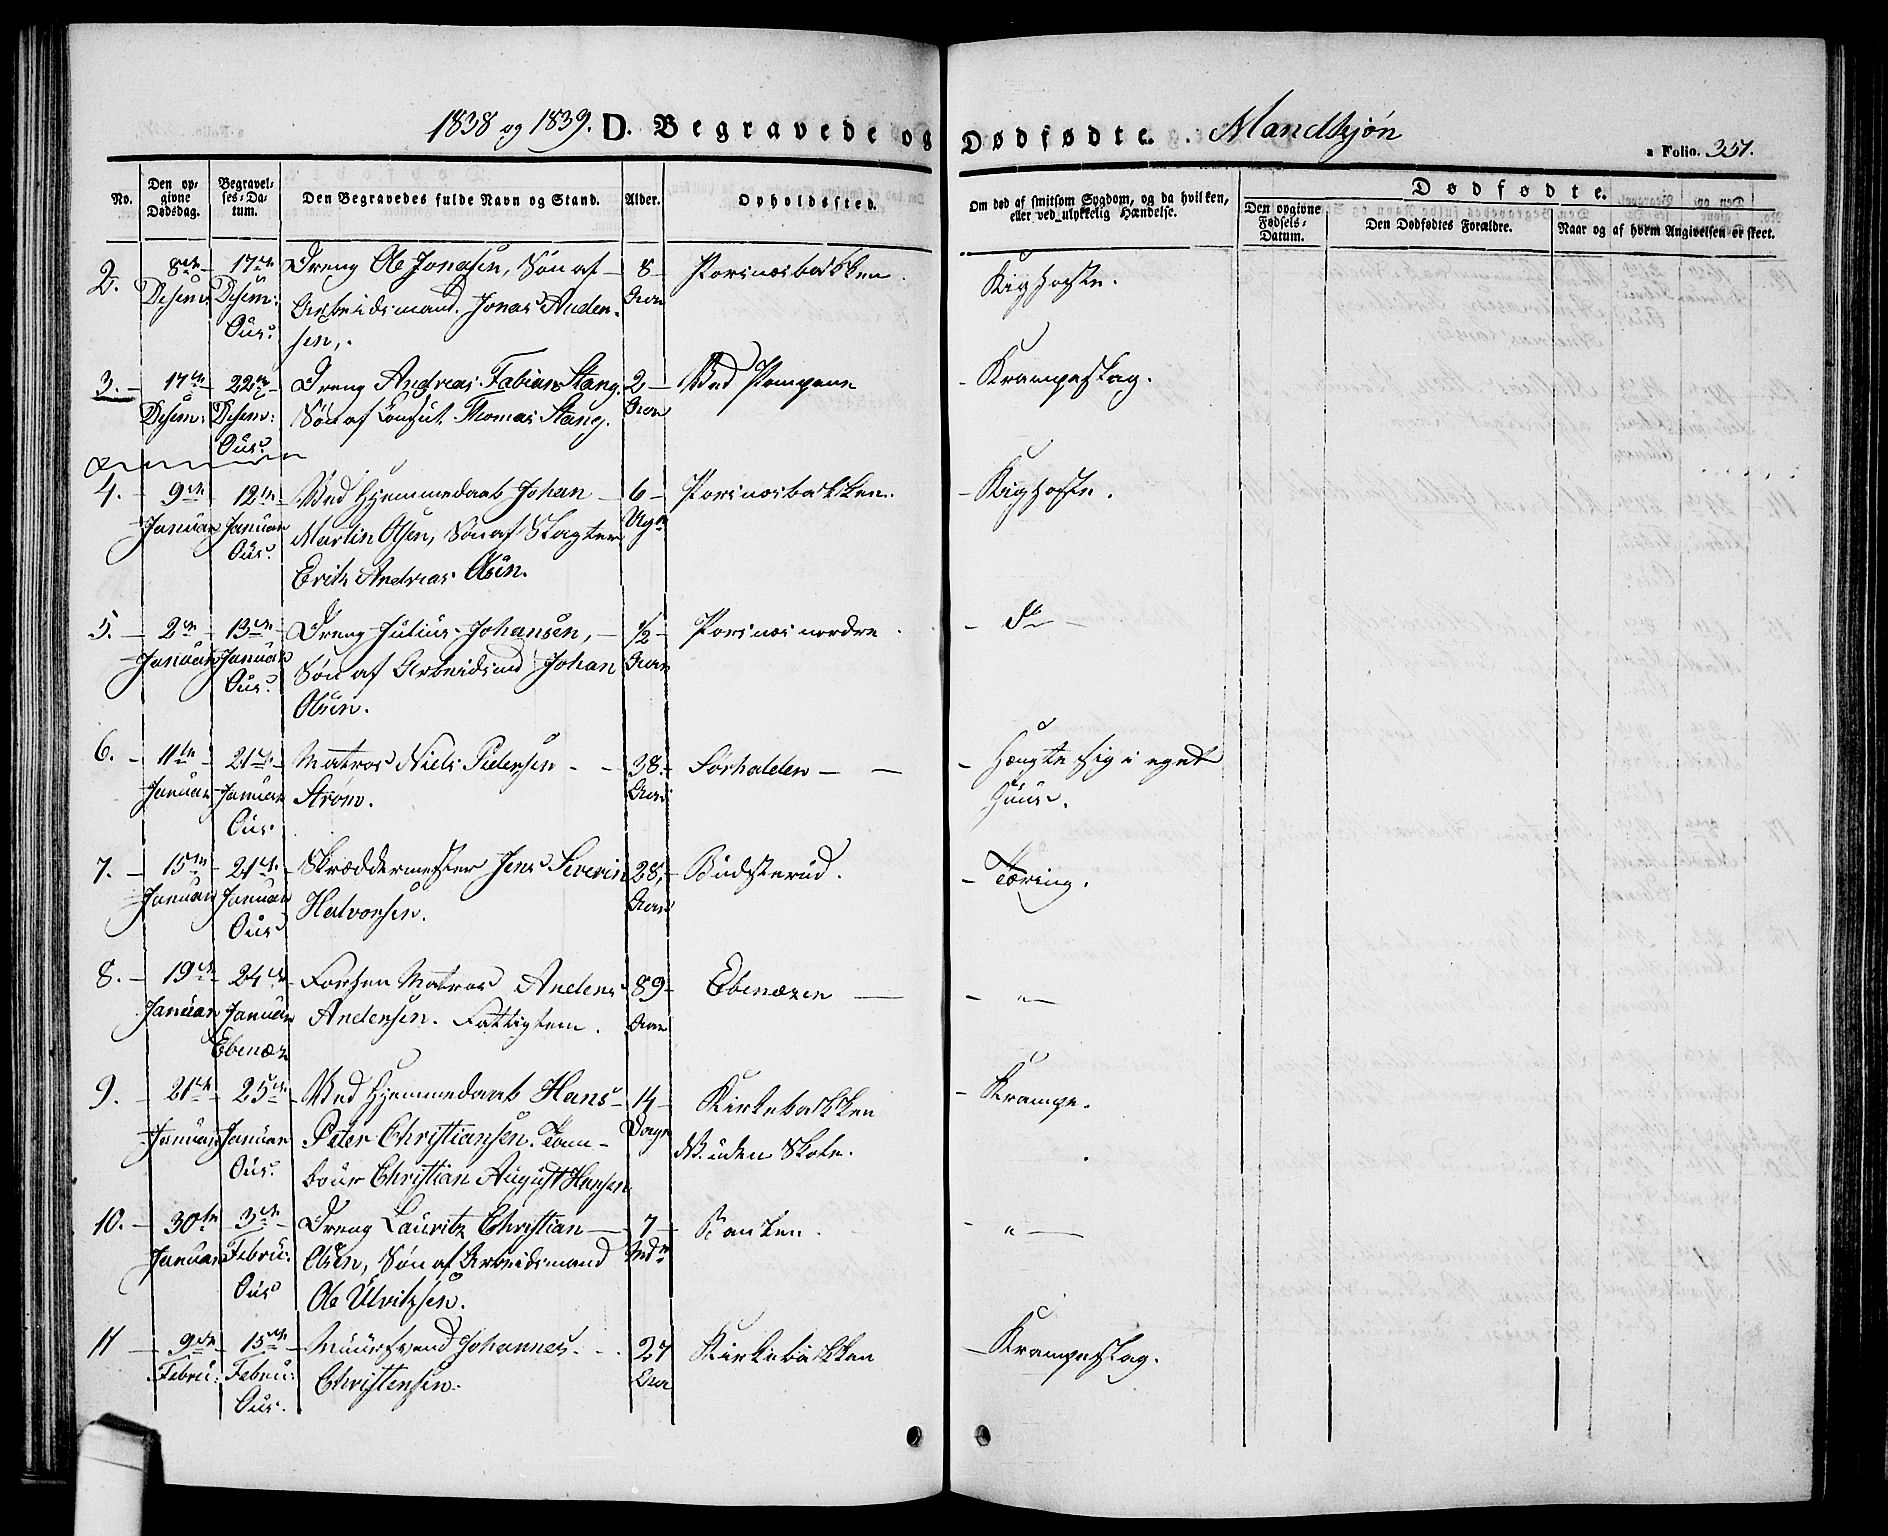 1838 og 1839. D. Begravede og Dødfødte. Mandkjøn
a Folio. 351.
No.
Den opgivne Dødsdag.
Begravelses-Datum.
Den Begravedes fulde Navn og Stand.
Alder.
Opholdssted.
Om død af smitsom Sygdom, og da hvilken, eller ved ulykkelig Hændelse.
Dødfødte.
Den opgivne Fødsels-Datum.
Den Dødfødtes Forældre.
Naar og af hvem Angivelsen er skeet.
2. 8de 17de Dreng Ole Jonasen, Søn af 8 Porsnesbakken. Kighoste.
Desem: Desem: Arbeidsmand Jonas Anden- Aar
Ous. sen,.
3. 17de 22de Dreng Andreas Fabian Stang, 2 Ved Pompene Krampeslag.
Desem: Desem: Søn af Consul Thomas Stang. Aar
Ous.
4. 9de 12te Ved Hjemmedaab Johan 6 Porsnesbakken. Kighoste.
Januar Januar Martin Olsen, Søn af Slagter Uger
Ous. Erik Andreas Olsen.
5. 2den 13de Dreng Julius Johansen, 1/2 Porsnes nordre. do
Januar Januar Søn af Arbeidsmd Johan Aar
Ous. Olsen.
6. 11te 21de Matros Niels Pedersen 38. Sørhalden Hængte sig i eget
Januar Januar Strøm. Aar Huus.
Ous.
7. 15de 21de Skræddermester Jens Severin 28, Budsterud. Tæring.
Januar Januar Halvorsen. Aar
Ous
8. 19de 24de Forhen Matros Anders 89 Ebenæzer "
Januar Januar Andersen. Fattiglem. Aar
Ebenæz
9. 21de 25de Ved Hjemmedaab Hans 14 Kirkebakken Krampe.
Januar Januar Peter Christiansen. Tam- Dage N. uden Skole.
Ous. bour Christian August Hansen
10. 30te 3de Dreng Lauritz Christian 7 Banken. "
Januar Febru: Olsen, Søn af Arbeidsmand
Ous Ole Ulvitzsen.
11 9de 15de Muursvend Johannes 27 Kirkebakken Krampeslag.
Febru: Febru: Christensen. Aar
Ous.